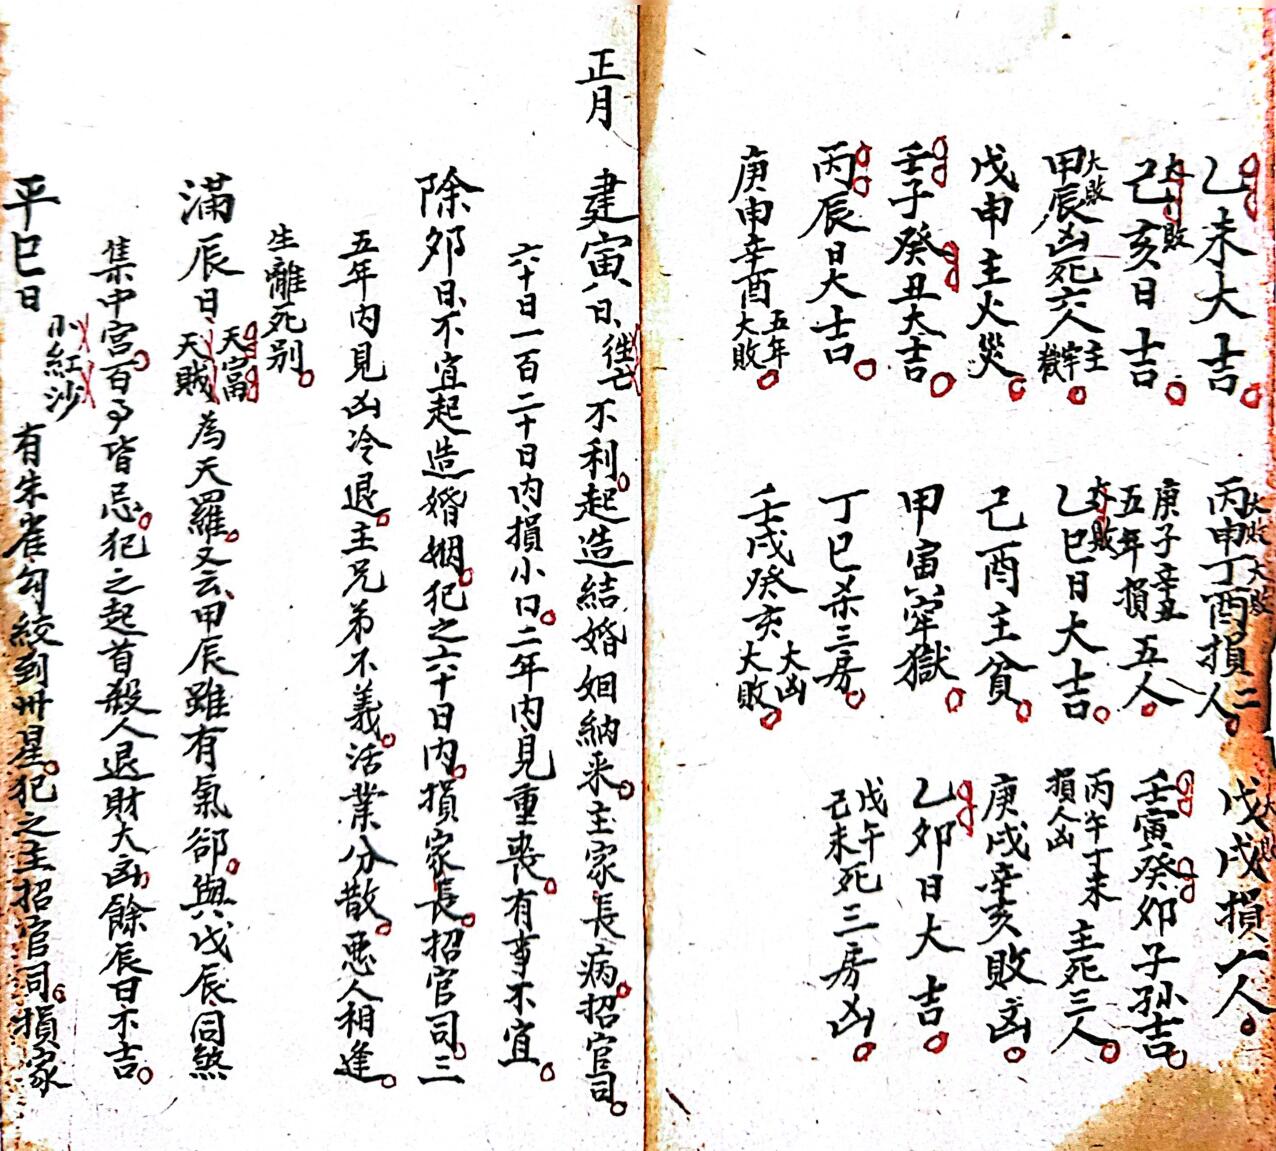 乙未大吉
丙申丁酉損二人
大敗大敗
戊戌損一人
大敗
己亥日吉
大敗
庚子辛丑五年損五人
壬寅癸卯子孫吉
甲辰凶死六人主牢獄
大敗
乙巳日大吉
大敗
丙午丁未損人凶主死三人
戊申主火災
己酉主貧
庚戌辛亥敗凶
壬子癸丑大吉
甲寅牢獄
乙卯日大吉
丙辰日大吉
丁巳杀三房
戊午己未死三房凶
庚申辛酉五年大敗
壬戌癸亥大凶大敗
正月
建寅日往亡不利起造結婚姻納采主家長病招官司
六十日一百二十日内損小口二年内見重喪有事不宜
除卯日不宜起造婚姻犯之六十日内損家長招官司三
五年内見凶冷退主兄弟不義活業分散惡人相逢
生離死别
滿辰日天富天賊為天羅又云甲辰雖有氣郤與戊辰同煞
集中宮百事皆忌犯之起首殺人退財大凶餘辰日不吉
平巳日小紅沙有朱雀勾絞到州星犯之主招官司損家